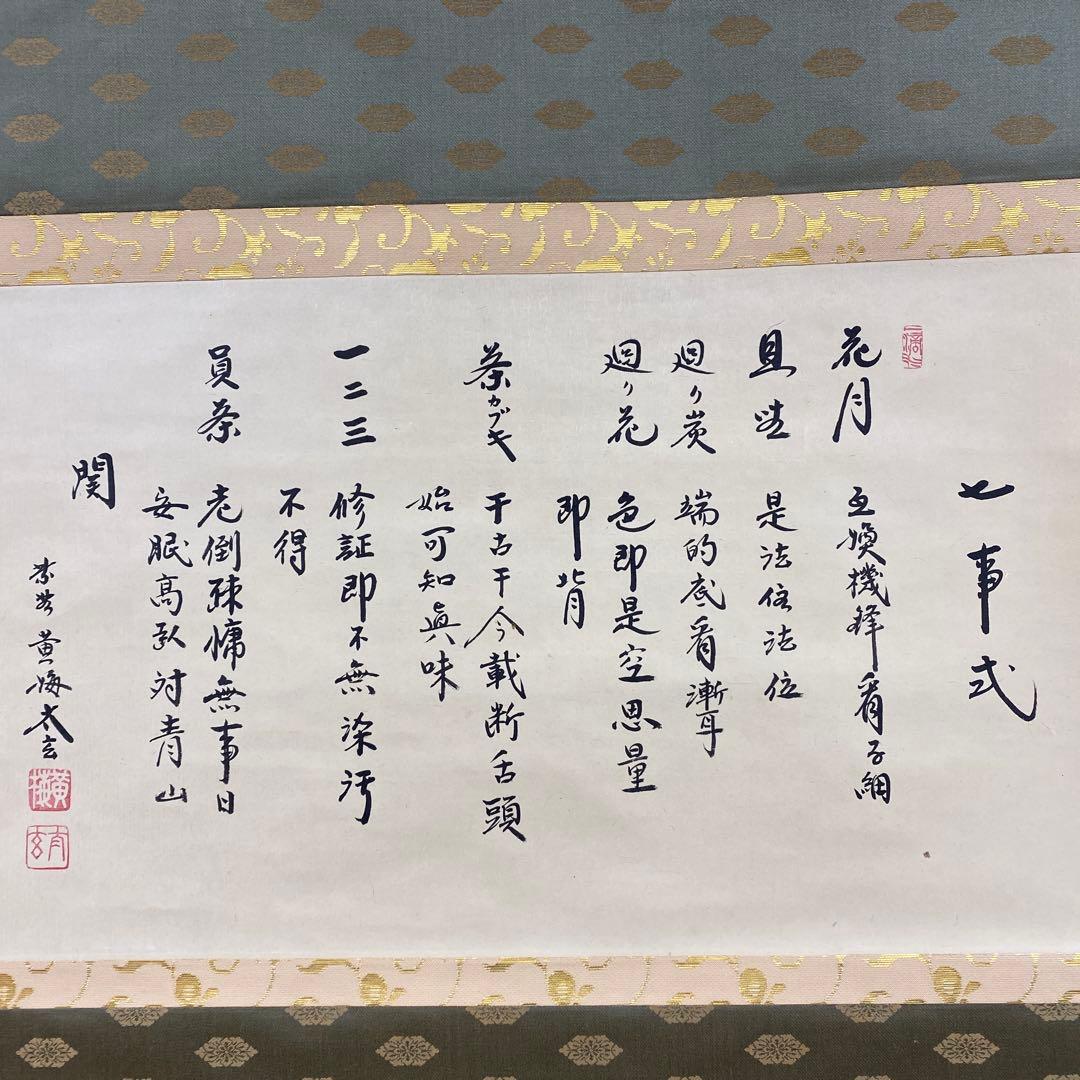 七事式
花月 互換機鋒看子細
且坐 是法住法位
廻リ炭 端的底看漸耳
廻リ花 色即是空思量
即背
茶カブキ 千古千今截断舌頭
始可知真味
一二三 修証即不無染汚
不得
員茶 老倒疎慵無事日
安眠高臥対青山
関
紫野 黄梅太玄
黄梅
太玄